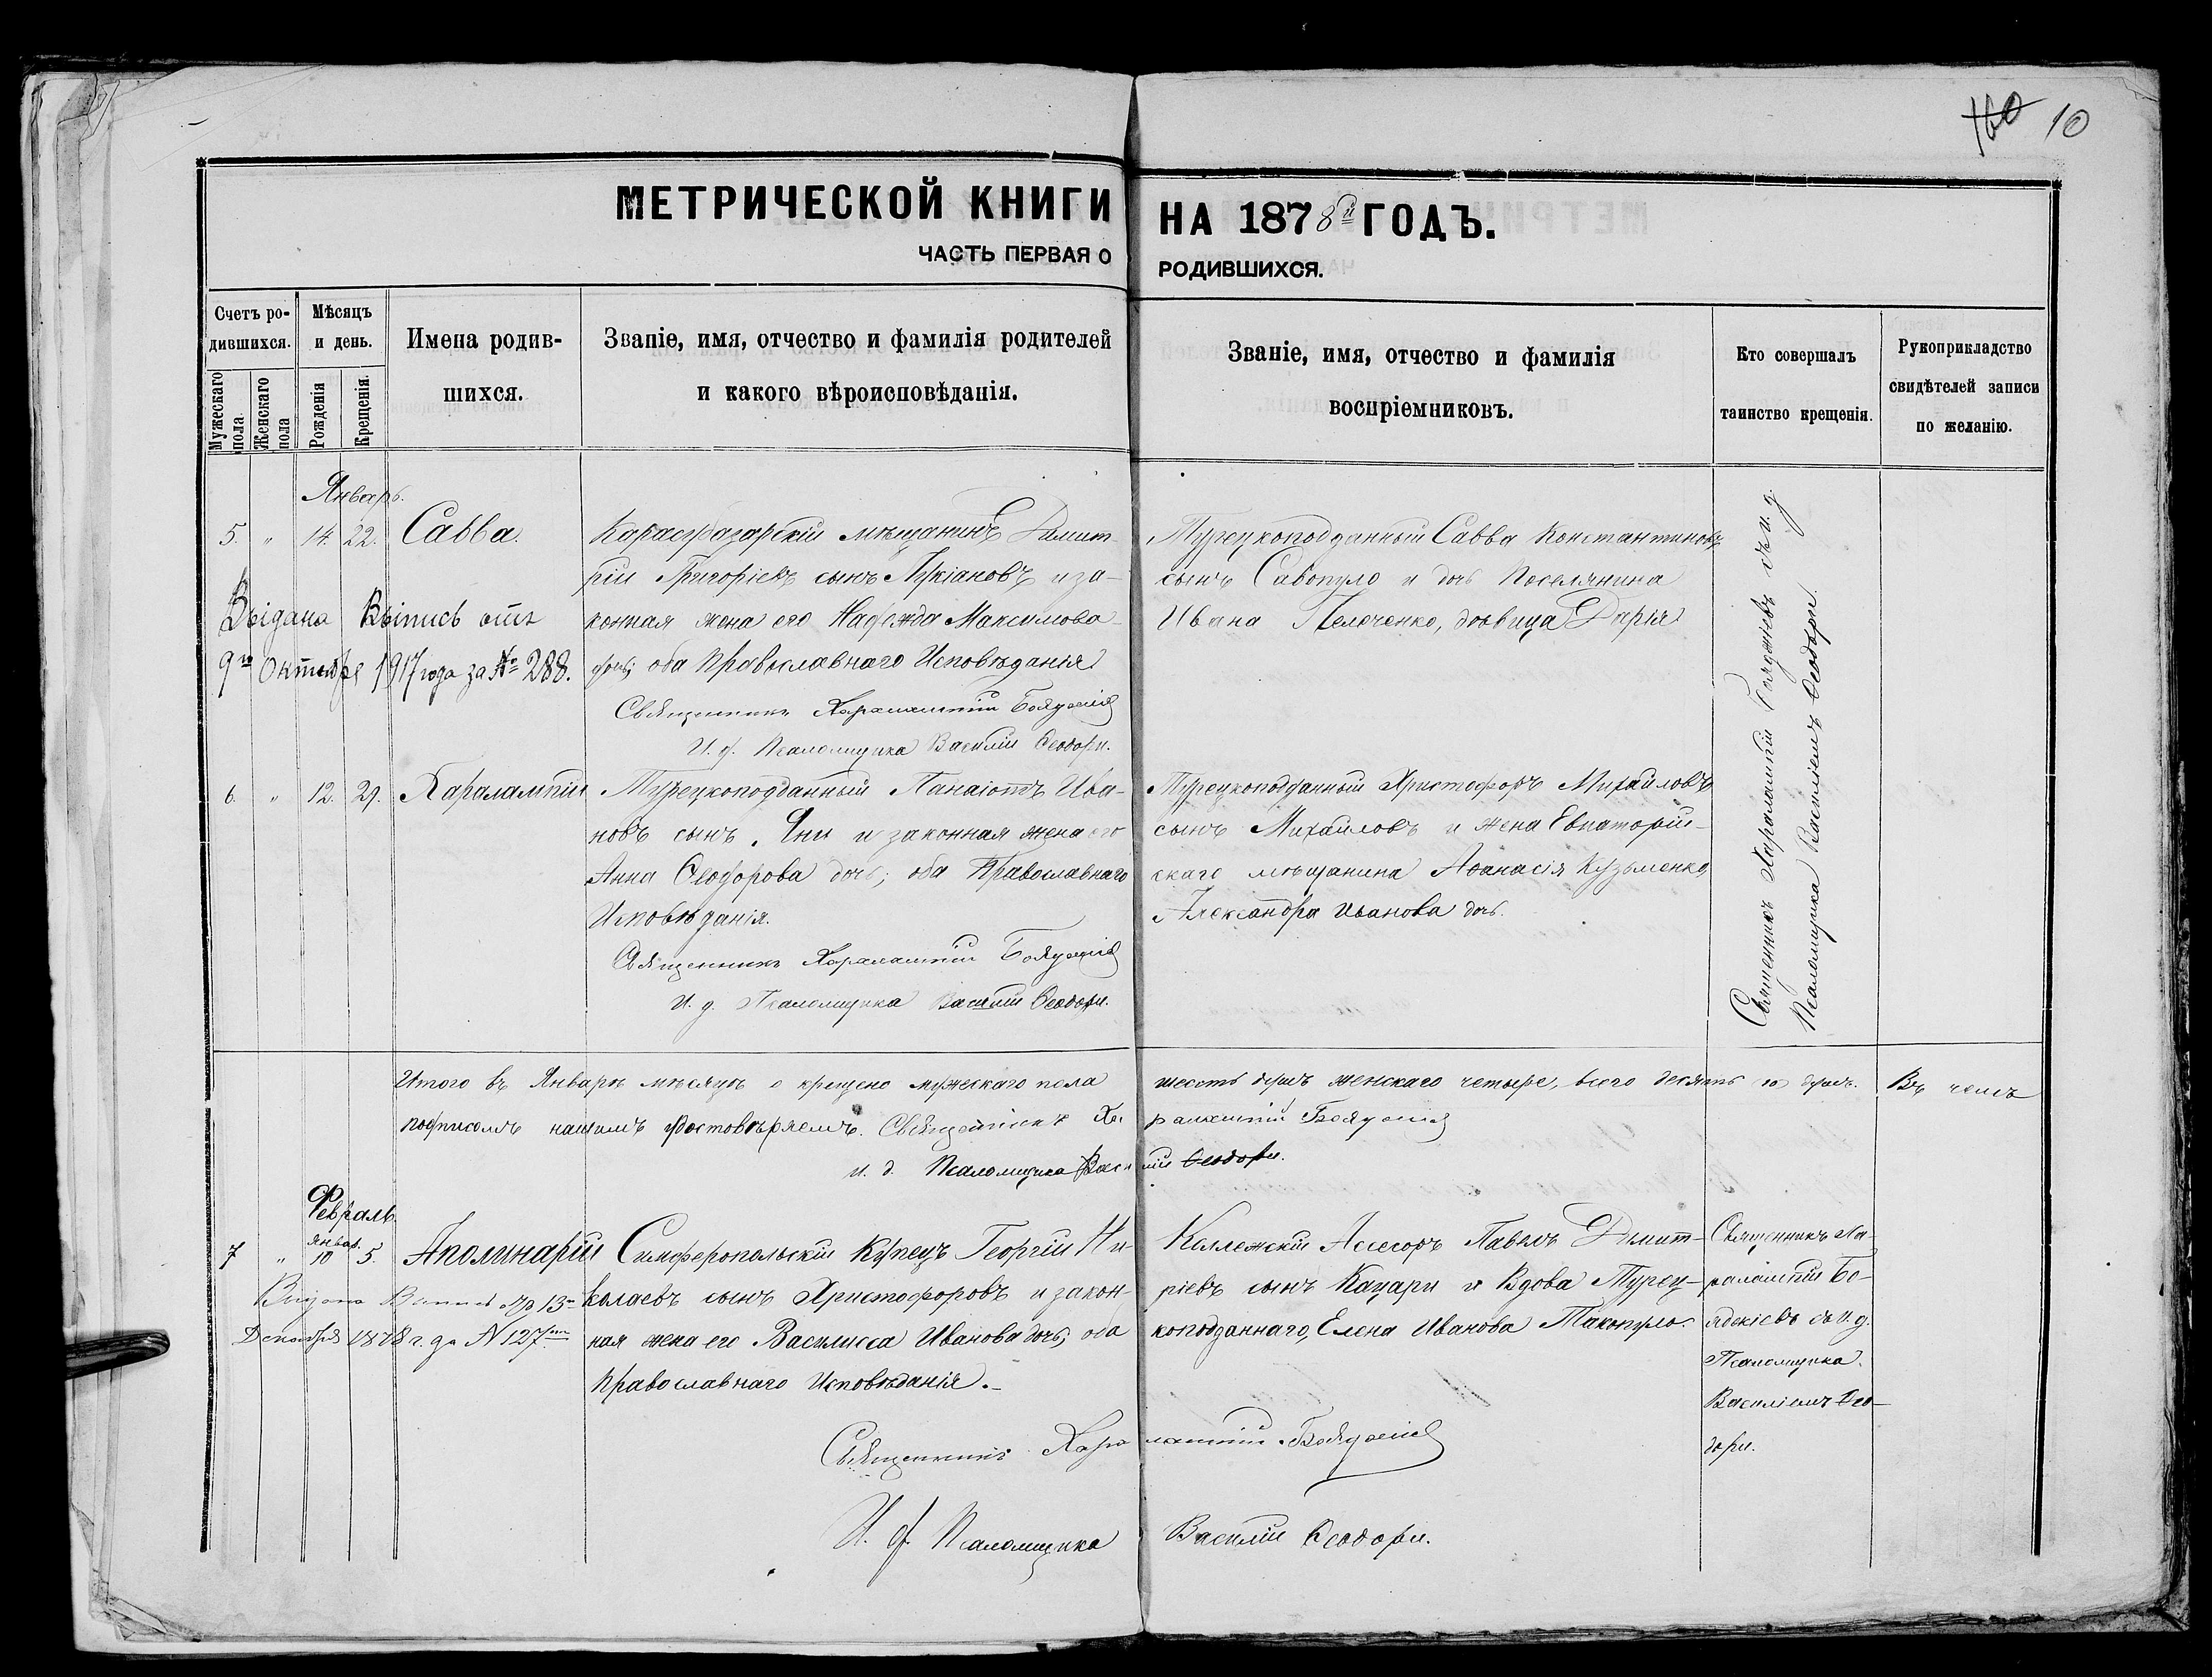 160 10
МЕТРИЧЕСКОЙ КНИГИ НА 1878й ГОДЪ.
ЧАСТЬ ПЕРВАЯ О РОДИВШИХСЯ.
Счетъ ро-
дившихся.
Мужескаго пола.
Женскаго пола
Мѣсяцъ
и день.
Рожденія
Крещенія.
Имена родив-
шихся.
Званіе, имя, отчество и фамилія родителей
и какого вѣроисповѣданія.
Званіе, имя, отчество и фамилія
воспріемниковъ.
Кто совершалъ
таинство крещенія.
Рукоприкладство
свидѣтелей записи
по желанію.
Январь.
5. " 14. 22. Савва.
Карасубазарскій мѣщанинъ Димит-
рій Григоріевъ сынъ Лукіановъ и за-
конная жена его Надежда Максимова
дочь; оба Православнаго Исповѣданія
Священникъ Харалампій
И. д. Псаломщика Василій Ѳеодори.
Выдана Выпись отъ
9го Октября 1917 года за № 288.
Турецкоподданный Савва Константиновъ
сынъ Савопуло и дочь Поселянина
Ивана дѣвица Дарія
Священникъ Харалампій Бояджіевъ съ и. д.
Псаломщика Василіемъ Ѳеодори.
6. " 12. 29. Харалампій
Турецкоподданный Панаіотъ Ива-
новъ сынъ Яни и законная жена его
Анна Ѳеодорова дочь; оба Православнаго
Исповѣданія.
Священникъ Харалампій
И. д. Псаломщика Василій Ѳеодори.
Турецкоподданный Христофоръ Михайловъ
сынъ Михайловъ и жена Евпаторій-
скаго мѣщанина Аѳанасія Кузьменко,
Александра Иванова дочь.
Итого въ Январѣ мѣсяцѣ окрещено мужескаго пола шесть душъ женскаго четыре, всего десять 10 душъ. Въ чемъ
подписомъ нашимъ удостовѣряемъ. Священникъ Харалампій
и. д. Псаломщика Василій Ѳеодори.
Февраль.
7 " Январ. 10 5. Аполинарій
Симферопольскій Купецъ Георгій Ни-
колаевъ сынъ Христофоровъ и закон-
ная жена его Василисса Иванова дочь; оба
Православнаго Исповѣданія.
Выдана Выпись 13
Декабря 1878 г. за N 127
Коллежскій Асесоръ Павелъ Димит-
ріевъ сынъ Кацари и Вдова Турец-
коподданнаго, Елена Иванова
Священникъ Ха-
ралампій Бо-
яджіевъ съ и. д.
Псаломщика
Василіемъ Ѳео-
дори.
Священникъ Харалампій
И. д. Псаломщика Василій Ѳеодори.